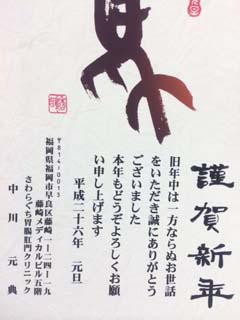 謹賀新年
旧年中は一方ならぬお世話
をいただき誠にありがとう
ございました
本年もどうぞよろしくお願
い申し上げます
平成二十六年 元旦
〒814-0013
福岡県福岡市早良区藤崎一-二四-一九
藤崎メディカルビル五階
さわらぐち胃腸肛門クリニック
中川元典